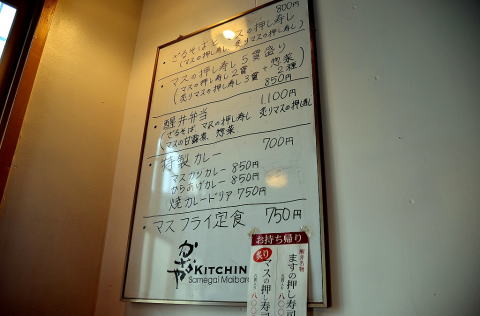 800円
・ざるそばとマスの押し寿し
(マスの押し寿し 炙りマスの押し寿し)
・マスの押し寿し5貫盛り
(マスの押し寿し2貫 + 惣菜
炙りマスの押し寿し3貫 2種)
850円
・醒井弁当 1,100円
(ざるそば マスの押し寿し 炙りマスの押し寿し
マスの甘露煮 惣菜
・特製カレー 700円
マスカツカレー 850円
からあげカレー 850円
焼カレードリア 750円
・マスフライ定食 750円
KITCHIN
Samegai Maibara
お持ち帰り
炙り
マスの押し寿司
ますの押し寿司